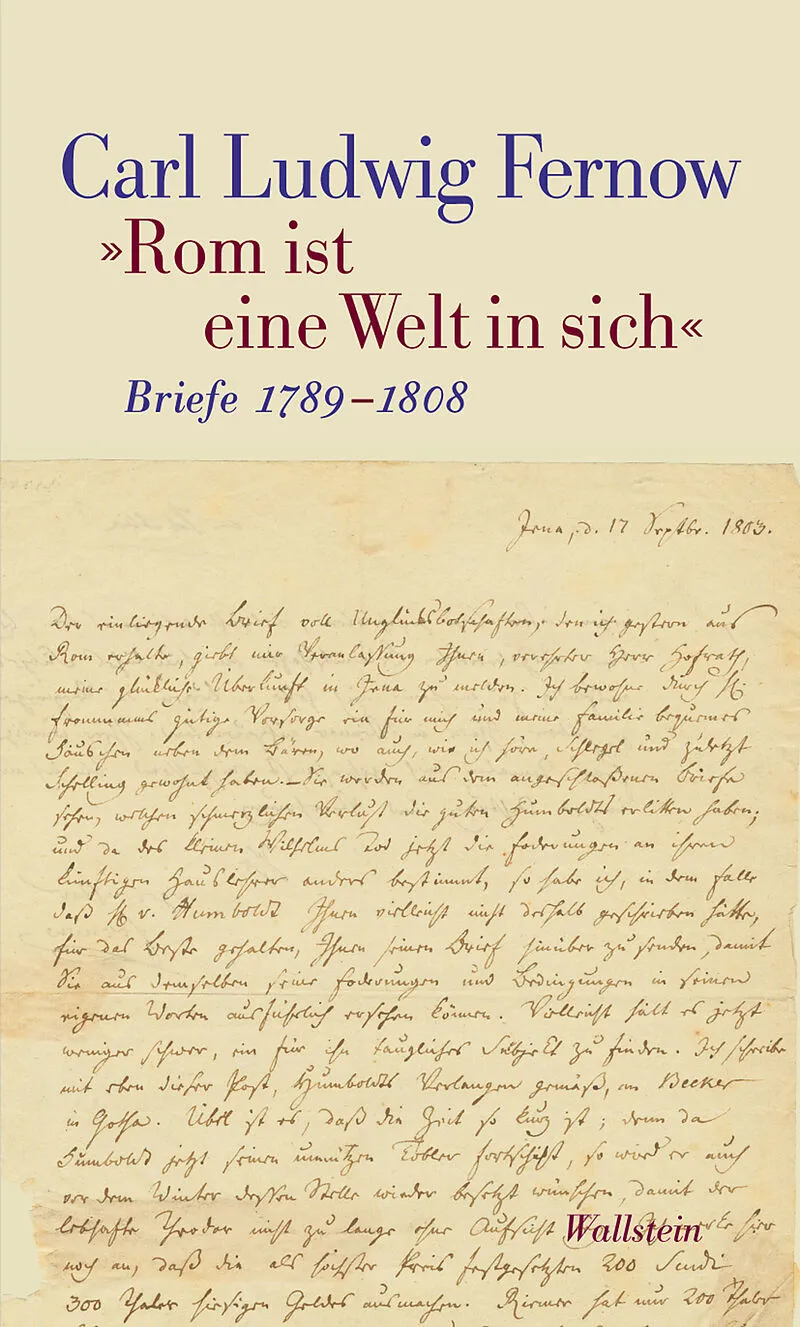 Carl Ludwig Fernow
»Rom ist
eine Welt in sich«
Briefe 1789–1808
Jena, d. 17 Septbr. 1803.
Der einliegende Brief voll Unglücksbotschaften, den ich gestern aus
Rom erhalte, giebt mir Veranlassung Ihnen, verehrter Herr Hofrath,
meine glückliche Überkunft in Jena zu melden. Ich bewohne durch H.
Frommanns gütige Vorsorge ein für mich und meine Familie bequemes
Häuschen neben dem Bären, wo auch, wie ich höre, Schlegel und zuletzt
Schelling gewohnt haben. – Sie werden aus dem angeschloßenen Briefe
sehen, welchen schmerzlichen Verlust die guten Humboldts erlitten haben;
und da des kleinen Wilhelms Tod jetzt die Foderungen an ihren
künftigen Hauslehrer anders bestimmt, so habe ich, in dem Falle
daß H. v. Humboldt Ihnen vielleicht nicht deshalb geschrieben hätte,
für das Beste gehalten, Ihnen seinen Brief hinüber zu senden, damit
Sie aus demselben seine Foderungen und Bedingungen in seinen
eigenen Worten ausführlich ersehen können. Vielleicht hält es jetzt
weniger schwer, ein für ihn taugliches Subjekt zu finden. Ich schreibe
mit eben dieser Post, Humboldts Verlangen gemäß, an Becker
in Gotha. Übel ist es, daß die Zeit so kurz ist; denn da
Humboldt jetzt seinen unnützen Tobler fortschikt, so wird er auch
vor dem Winter dessen Stelle wieder besetzt wünschen, damit der
lebhafte Theodor nicht zu lange ohne Aufsicht hier
Wallstein
noch an, daß die als höchster Preis festgesetzten 200 Scudi
300 Thaler hiesigen Geldes ausmachen. Riemer hat nur 200 Thaler